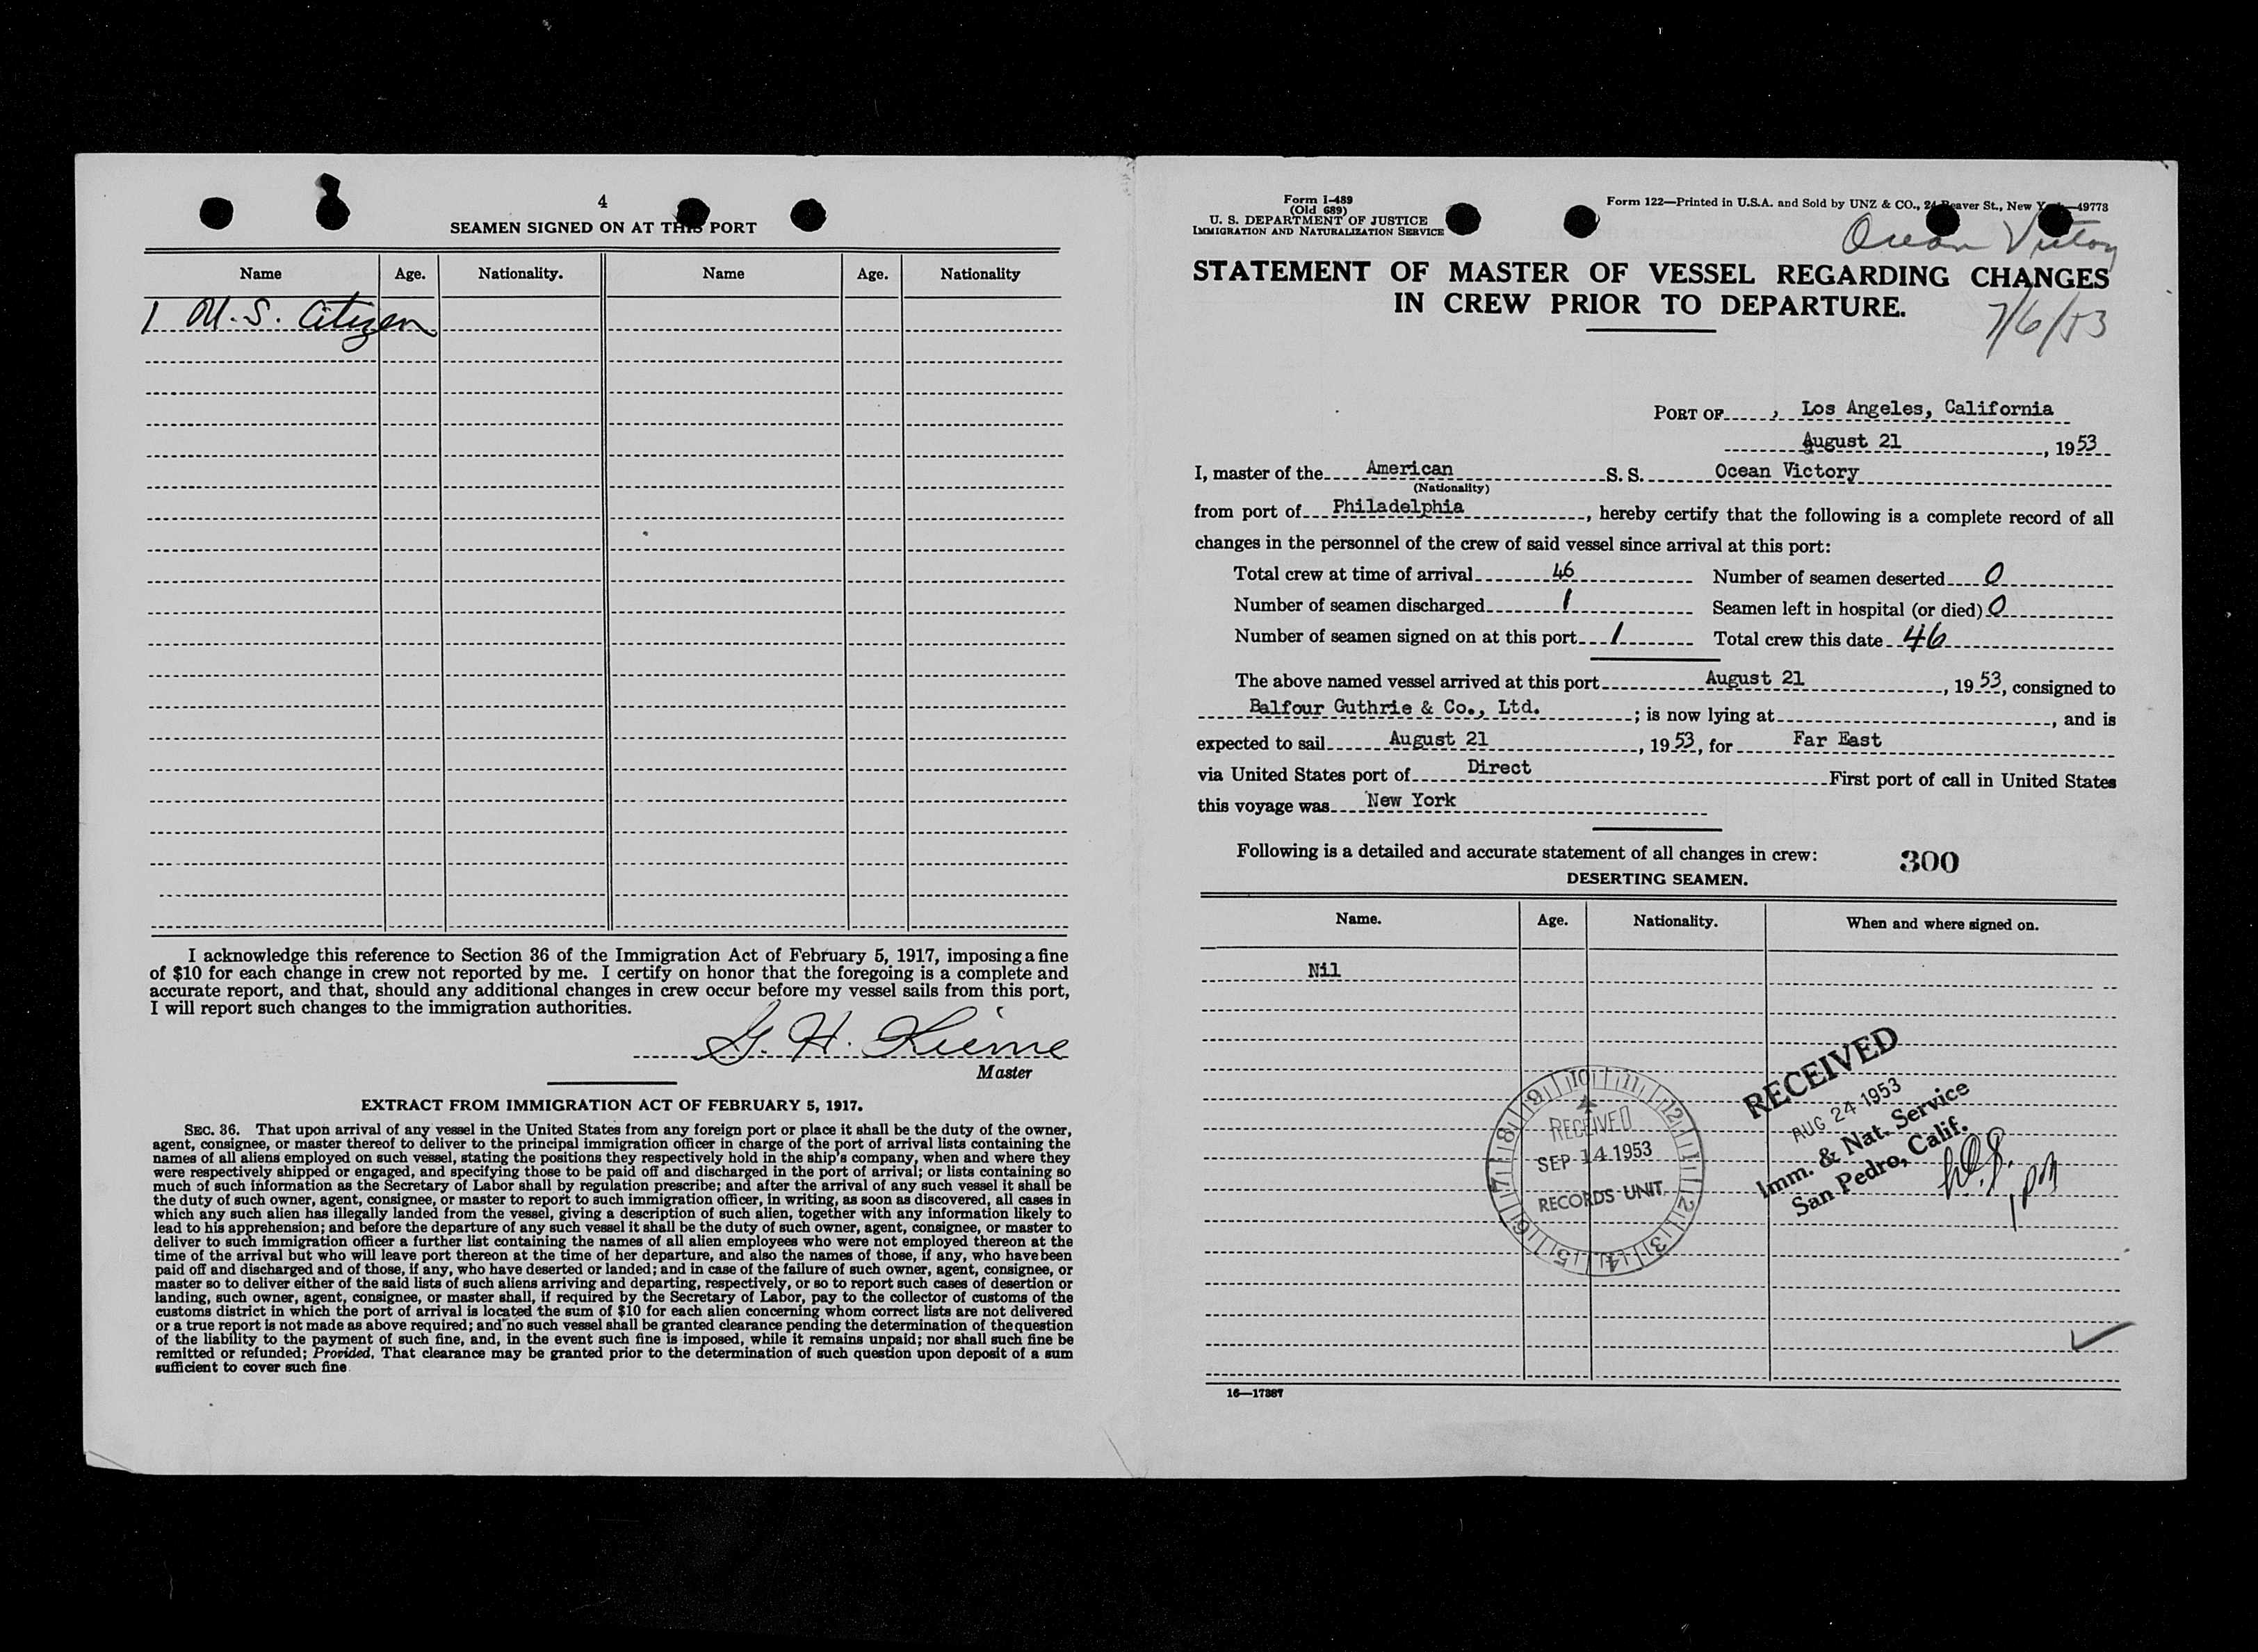 4
SEAMEN SIGNED ON AT THIS PORT
Name Age. Nationality. Name Age. Nationality
1 U.S. Citizen
I acknowledge this reference to Section 36 of the Immigration Act of February 5, 1917, imposing a fine
of $10 for each change in crew not reported by me. I certify on honor that the foregoing is a complete and
accurate report, and that, should any additional changes in crew occur before my vessel sails from this port,
I will report such changes to the immigration authorities.
G. H.
Master
EXTRACT FROM IMMIGRATION ACT OF FEBRUARY 5, 1917.
SEC. 36. That upon arrival of any vessel in the United States from any foreign port or place it shall be the duty of the owner,
agent, consignee, or master thereof to deliver to the principal immigration officer in charge of the port of arrival lists containing the
names of all aliens employed on such vessel, stating the positions they respectively hold in the ship's company, when and where they
were respectively shipped or engaged, and specifying those to be paid off and discharged in the port of arrival; or lists containing so
much of such information as the Secretary of Labor shall by regulation prescribe; and after the arrival of any such vessel it shall be
the duty of such owner, agent, consignee, or master to report to such immigration officer, in writing, as soon as discovered, all cases in
which any such alien has illegally landed from the vessel, giving a description of such alien, together with any information likely to
lead to his apprehension; and before the departure of any such vessel it shall be the duty of such owner, agent, consignee, or master to
deliver to such immigration officer a further list containing the names of all alien employees who were not employed thereon at the
time of the arrival but who will leave port thereon at the time of her departure, and also the names of those, if any, who have been
paid off and discharged and of those, if any, who have deserted or landed; and in case of the failure of such owner, agent, consignee, or
master so to deliver either of the said lists of such aliens arriving and departing, respectively, or so to report such cases of desertion or
landing, such owner, agent, consignee, or master shall, if required by the Secretary of Labor, pay to the collector of customs of the
customs district in which the port of arrival is located the sum of $10 for each alien concerning whom correct lists are not delivered
or a true report is not made as above required; and no such vessel shall be granted clearance pending the determination of the question
of the liability to the payment of such fine, and, in the event such fine is imposed, while it remains unpaid; nor shall such fine be
remitted or refunded; Provided, That clearance may be granted prior to the determination of such question upon deposit of a sum
sufficient to cover such fine.
Form I-489
(Old 689)
U. S. DEPARTMENT OF JUSTICE
IMMIGRATION AND NATURALIZATION SERVICE
Form 122—Printed in U.S.A. and Sold by UNZ & CO., 24 Beaver St., New York—49773
Ocean Victory
STATEMENT OF MASTER OF VESSEL REGARDING CHANGES
IN CREW PRIOR TO DEPARTURE.
7/6/53
PORT OF , Los Angeles, California
August 21, 1953
I, master of the American S. S. Ocean Victory
(Nationality)
from port of Philadelphia, hereby certify that the following is a complete record of all
changes in the personnel of the crew of said vessel since arrival at this port:
Total crew at time of arrival 46 Number of seamen deserted 0
Number of seamen discharged 1 Seamen left in hospital (or died) 0
Number of seamen signed on at this port 1 Total crew this date 46
The above named vessel arrived at this port August 21, 1953, consigned to
Balfour Guthrie & Co., Ltd. ; is now lying at , and is
expected to sail August 21, 1953, for Far East
via United States port of Direct First port of call in United States
this voyage was New York
Following is a detailed and accurate statement of all changes in crew: 300
DESERTING SEAMEN.
Name. Age. Nationality. When and where signed on.
Nil
RECEIVED
AUG 24 1953
Imm. & Nat. Service
San Pedro, Calif.
1 PM
9 10 11 12 1 2 3 4 5 6 7 8
RECEIVED
SEP 14 1953
RECORDS UNIT
16—17387